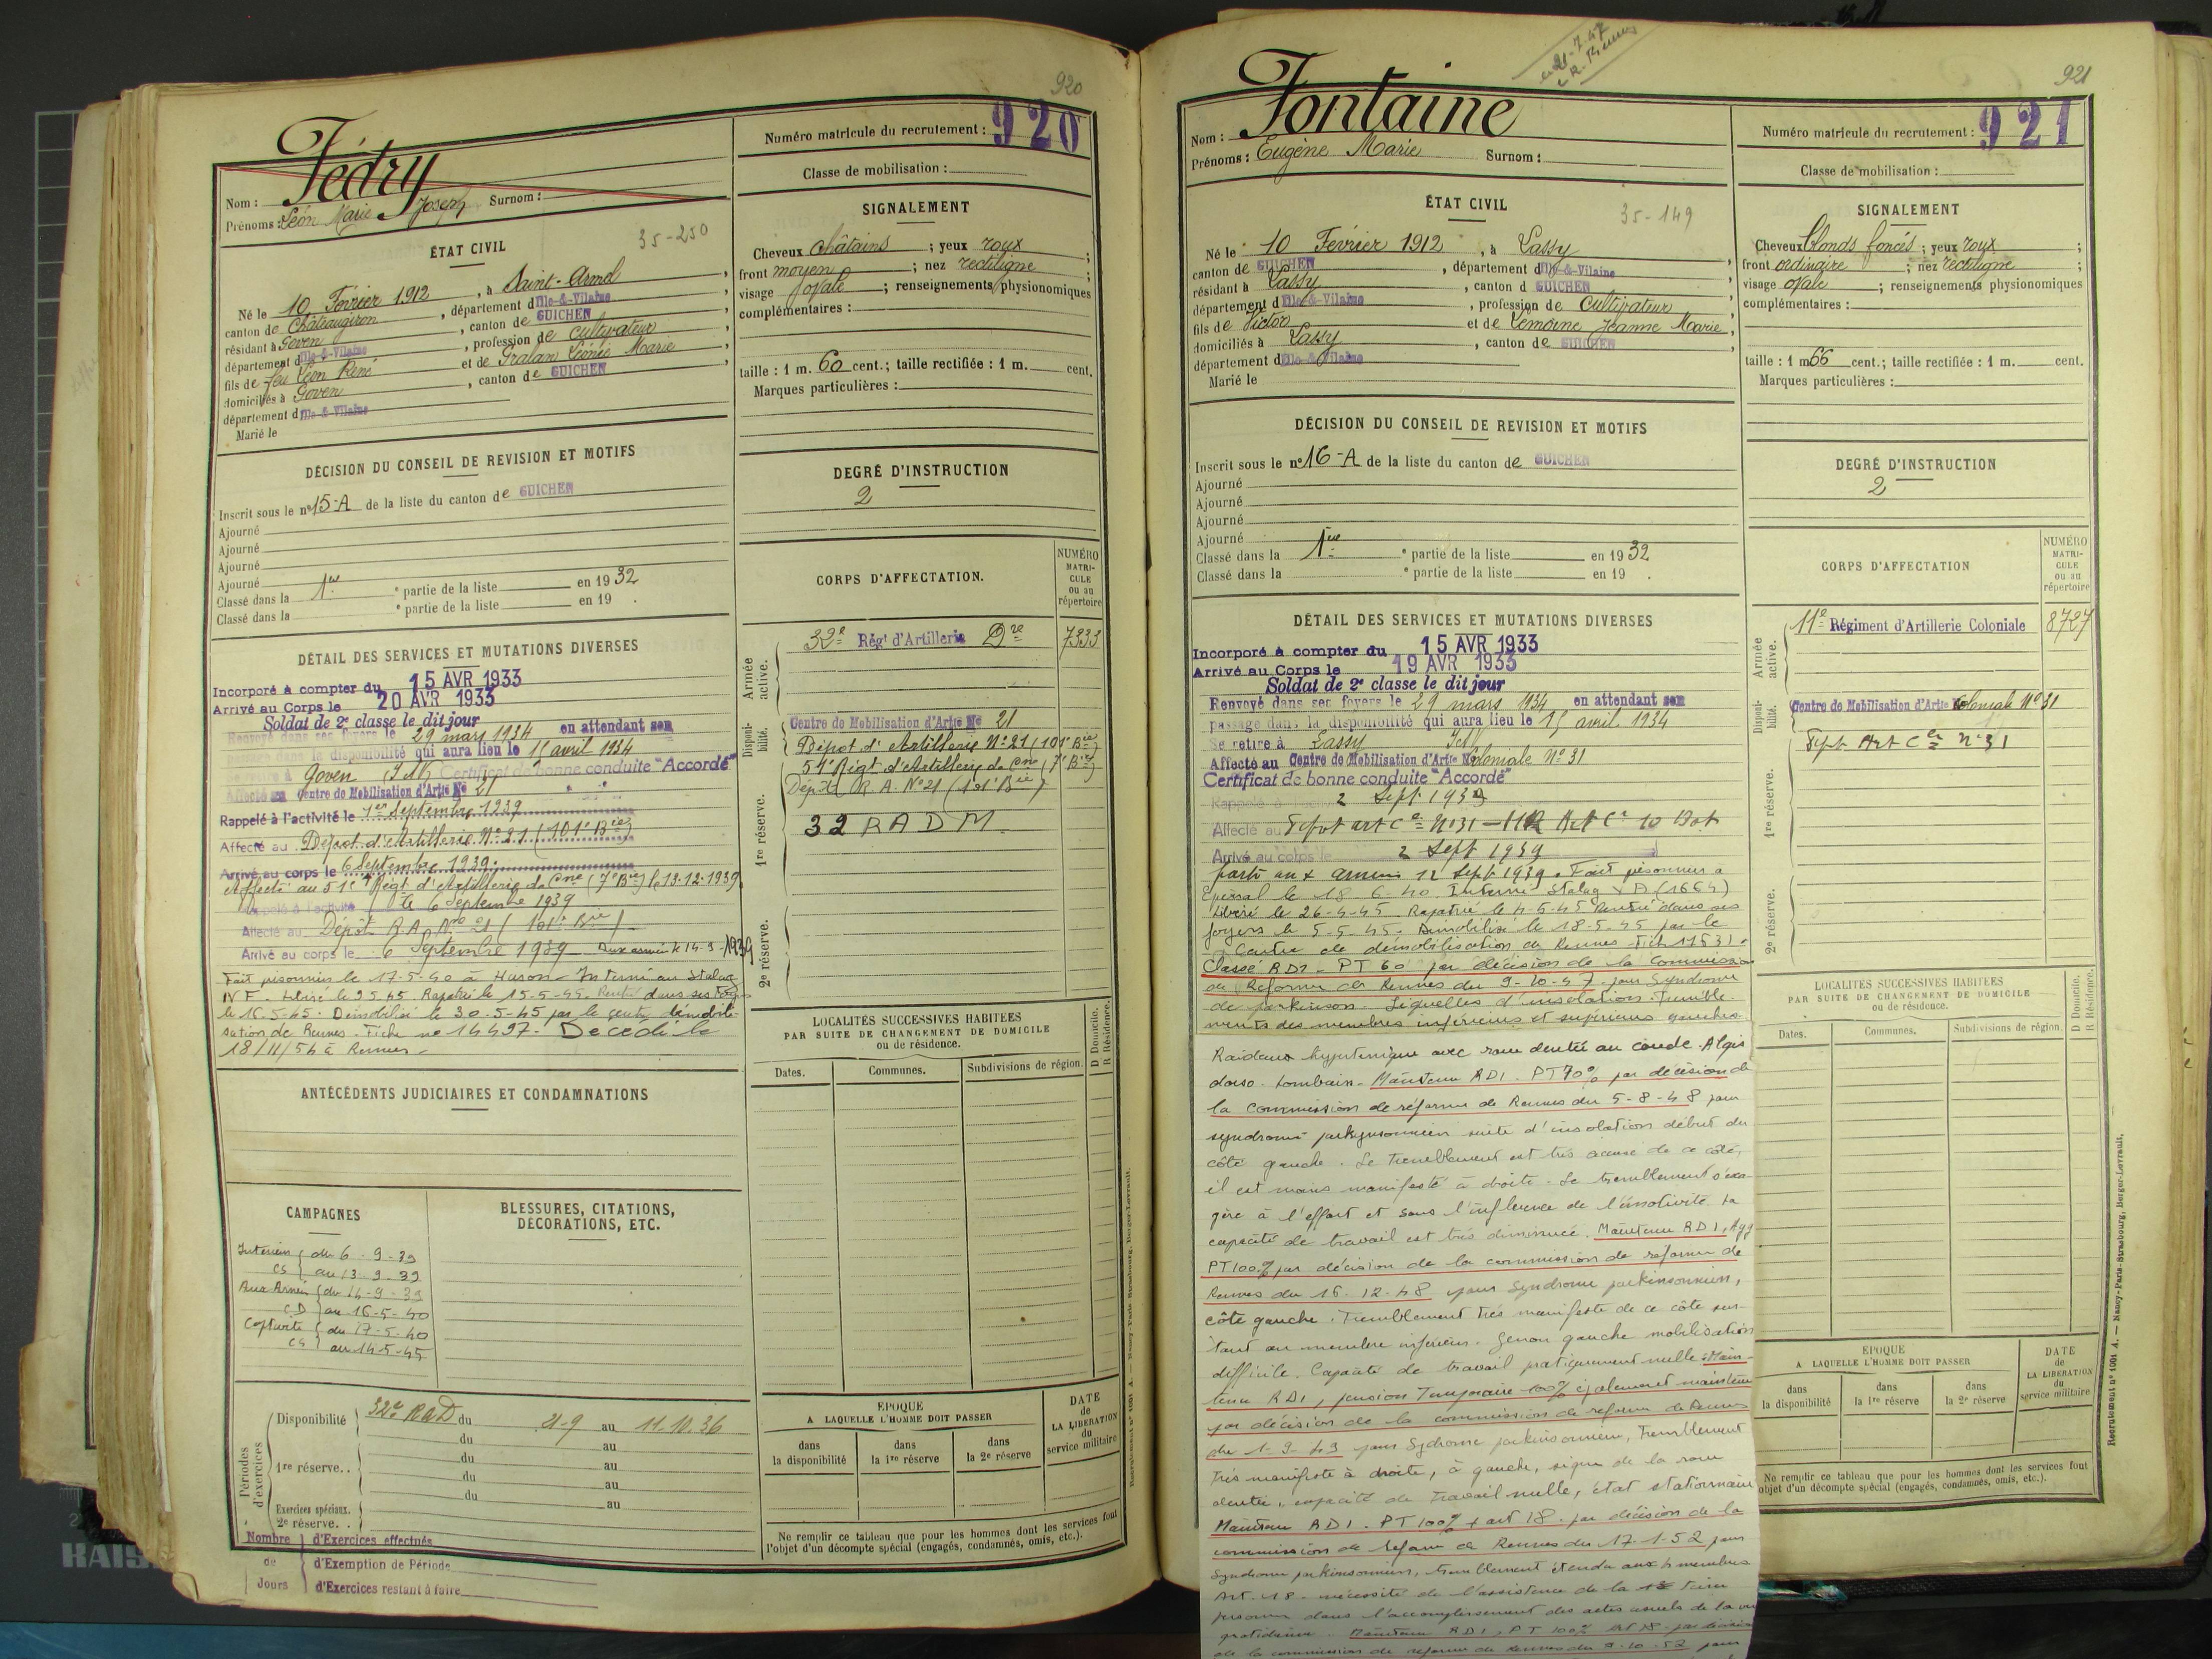 920
Fédry
Nom :
Prénoms : Léon Marie Joseph Surnom :
Numéro matricule du recrutement : 920
Classe de mobilisation :
ÉTAT CIVIL
35-250
Né le 10 Février 1912, à Saint-Armel
canton de Châteaugiron, département d'Ille-&-Vilaine
résidant à Goven, canton de GUICHEN
département d'Ille-&-Vilaine, profession de cultivateur
fils de feu Léon René et de Gralan Léonie Marie
domiciliés à Goven, canton de GUICHEN
département d'Ille-&-Vilaine
Marié le
SIGNALEMENT
Cheveux châtains ; yeux roux ;
front moyen ; nez rectiligne ;
visage ovale ; renseignements physionomiques
complémentaires :
taille : 1 m. 60 cent.; taille rectifiée : 1 m. cent.
Marques particulières :
DÉCISION DU CONSEIL DE REVISION ET MOTIFS
Inscrit sous le n° 15-A de la liste du canton de GUICHEN
Ajourné
Ajourné
Ajourné
Ajourné
Classé dans la 1re e partie de la liste en 1932
Classé dans la e partie de la liste en 19 .
DEGRÉ D'INSTRUCTION
2
DÉTAIL DES SERVICES ET MUTATIONS DIVERSES
Incorporé à compter du 15 AVR 1933
Arrivé au Corps le 20 AVR 1933
Soldat de 2e classe le dit jour
Renvoyé dans ses foyers le 29 mars 1934 en attendant son
passage dans la disponibilité qui aura lieu le 15 avril 1934
Se retire à Goven I&V Certificat de bonne conduite "Accordé"
Affecté au Centre de Mobilisation d'Artie No 21
Rappelé à l'activité le 1er Septembre 1939
Affecté au Dépôt d'Artillerie N° 21 (101e Bie)
Arrivé au corps le 6 Septembre 1939
Affecté au 51e Régt d'Artillerie de Cne (7e Bie) le 13-12-1939
Rappelé à l'activité le 6 Septembre 1939
Affecté au Dépôt R.A. No 21 (101e Bie)
Arrivé au corps le 6 Septembre 1939 Aux armées le 14-9-1939
Fait prisonnier le 17-5-40 à Huson - Interné au Stalag
IV F - Libéré le 9 5 45. Rapatrié le 15-5-45. Rentré dans ses Foyers
le 16-5-45. Démobilisé le 30-5-45 par le centre démobili-
sation de Rennes. Fiche no 14497. Décédé le
18/11/54 à Rennes -
CORPS D'AFFECTATION.
NUMÉRO MATRI-CULE ou au répertoire
Armée active.
32e Régt d'Artillerie Dre 7333
Disponi-bilité.
Centre de Mobilisation d'Artie No 21
Dépôt d'Artillerie N° 21 (101e Bie)
51e Régt d'Artillerie de Cne (7e Bie)
Dépôt R.A. N° 21 (101e Bie)
1re réserve.
32 RADM
2e réserve.
ANTÉCÉDENTS JUDICIAIRES ET CONDAMNATIONS
LOCALITÉS SUCCESSIVES HABITÉES
PAR SUITE DE CHANGEMENT DE DOMICILE
ou de résidence.
D Domicile.
R Résidence.
Dates. Communes. Subdivisions de région.
CAMPAGNES
Intérieur du 6-9-39
CS au 13-9-39
Aux Armées du 14-9-39
CD au 16-5-40
Captivité du 17-5-40
CS au 14-5-45
BLESSURES, CITATIONS,
DÉCORATIONS, ETC.
Périodes d'exercices
Disponibilité 32e RAD du 21-9 au 11.10.36
du au
1re réserve. . du au
du au
du au
Exercices spéciaux.
2e réserve. . au
Nombre de Jours
d'Exercices effectués
d'Exemption de Période
d'Exercices restant à faire
ÉPOQUE
A LAQUELLE L'HOMME DOIT PASSER
dans la disponibilité
dans la 1re réserve
dans la 2e réserve
DATE de LA LIBÉRATION du service militaire
Ne remplir ce tableau que pour les hommes dont les services font
l'objet d'un décompte spécial (engagés, condamnés, omis, etc.).
21-7-47
Rennes
921
Fontaine
Nom :
Prénoms : Eugène Marie Surnom :
Numéro matricule du recrutement : 921
Classe de mobilisation :
ÉTAT CIVIL
35-149
Né le 10 Février 1912, à Lassy
canton de GUICHEN, département d'Ille-&-Vilaine
résidant à Lassy, canton d GUICHEN
département d'Ille-&-Vilaine, profession de Cultivateur
fils de Victor et de Lemoine Jeanne Marie
domiciliés à Lassy, canton de GUICHEN
département d'Ille-&-Vilaine
Marié le
SIGNALEMENT
Cheveux blonds foncés ; yeux roux ;
front ordinaire ; nez rectiligne ;
visage ovale ; renseignements physionomiques
complémentaires :
taille : 1 m 66 cent.; taille rectifiée : 1 m. cent.
Marques particulières :
DÉCISION DU CONSEIL DE REVISION ET MOTIFS
Inscrit sous le n° 16-A de la liste du canton de GUICHEN
Ajourné
Ajourné
Ajourné
Ajourné
Classé dans la 1re e partie de la liste en 1932
Classé dans la e partie de la liste en 19 .
DEGRÉ D'INSTRUCTION
2
DÉTAIL DES SERVICES ET MUTATIONS DIVERSES
Incorporé à compter du 15 AVR 1933
Arrivé au Corps le 19 AVR 1933
Soldat de 2e classe le dit jour
Renvoyé dans ses foyers le 29 mars 1934 en attendant son
passage dans la disponibilité qui aura lieu le 15 avril 1934
Se retire à Lassy I&V
Affecté au Centre de Mobilisation d'Artie Coloniale N° 31
Certificat de bonne conduite "Accordé"
Rappelé à 2 Sept 1939
Affecté au Dépôt art Cle N° 31 - 11R Art Cle 10 Bat
Arrivé au corps le 2 Sept 1939
parti aux armées 12 Sept 1939. Fait prisonnier à
Epinal le 18-6-40. Interné Stalag V A (1664)
Libéré le 26-4-45 Rapatrié le 4-5-45 Rentré dans ses
foyers le 5-5-45. Démobilisé le 18-5-45 par le
Centre de démobilisation de Rennes - Fich 11531.
Classé RD1 - PT 60 par décision de la Commission
de Réforme de Rennes du 9-10-47 pour Syndrome
de parkinson. Séquelles d'insolation. Tremble-
ments des membres inférieurs et supérieurs gauches.
Raideur hypertonique avec roue dentée au coude. Algis
dorso-lombaire - Maintenu RD1. PT 70% par décision de
la commission de réforme de Rennes du 5-8-48 pour
syndrome parkynsonnien suite d'insolation début du
côté gauche. Le tremblement est très accusé de ce côté,
il est moins manifesté à droite. Le tremblement s'exa-
gère à l'effort et sous l'influence de l'émotivité. La
capacité de travail est très diminuée. Maintenu RD1, Agg
PT 100% par décision de la commission de reforme de
Rennes du 16-12-48 pour Syndrome parkinsonnien,
côté gauche. Tremblement très manifeste de ce côté sur-
tout au membre inférieur. Genou gauche mobilisation
difficile. Capacité de travail pratiquement nulle : Main-
tenu RD1, pension Temporaire 100% également maintenu
par décision de la commission de reforme de Rennes
du 1-9-49 pour Sydrome parkinsonnien, Tremblement
très manifeste à droite, à gauche, signe de la roue
dentée, capacité de Travail nulle, état stationnaire
Maintenu RD1. PT 100% + art 18. par décision de la
commission de reforme de Rennes du 17-1-52 pour
Syndrome parkinsonnien, tremblement étendu aux 4 membres
Art. 18. nécessité de l'assistance de la 1ère tierce
personne dans l'accomplissement des actes usuels de la vie
quotidienne. Maintenu RD1, PT 100% art 18 par décision
de la commission de reforme de Rennes du 9-10-52 pour
CORPS D'AFFECTATION
NUMÉRO MATRI-CULE ou au répertoire
Armée active.
11e Régiment d'Artillerie Coloniale 8727
Disponi-bilité.
Centre de Mobilisation d'Artie Coloniale N° 31
Dépôt Art Cle N° 31
1re réserve.
2e réserve.
LOCALITÉS SUCCESSIVES HABITÉES
PAR SUITE DE CHANGEMENT DE DOMICILE
ou de résidence.
D Domicile.
R Résidence.
Dates. Communes, Subdivisions de région.
ÉPOQUE
A LAQUELLE L'HOMME DOIT PASSER
dans la disponibilité
dans la 1re réserve
dans la 2e réserve
DATE de LA LIBÉRATION du service militaire
Ne remplir ce tableau que pour les hommes dont les services font
objet d'un décompte spécial (engagés, condamnés, omis, etc.).
Recrutement n° 1001 A. — Nancy-Paris-Strasbourg, Berger-Levrault.